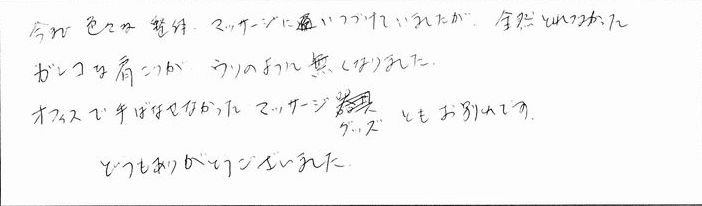 今まで色々な整体、マッサージに通いつづけていましたが、全然とれなかった
ガンコな肩こりが、ウソのように無くなりました。
オフィスで手ばなせなかったマッサージグッズともお別れです。
どうもありがとうございました。